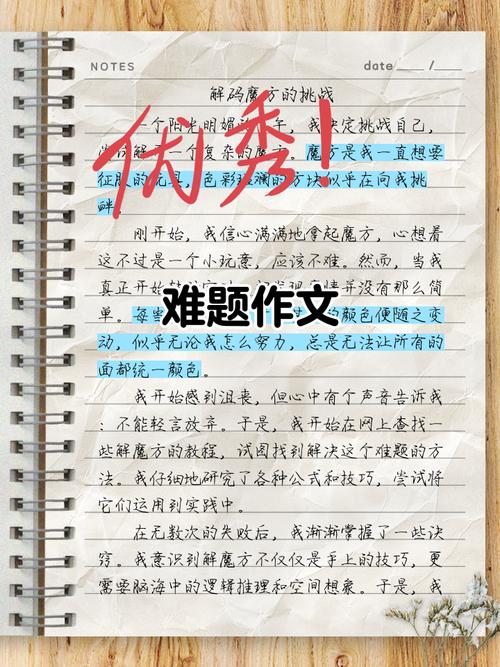 NOTES
date ___ /___
解码魔方的挑战
一个阳光明媚的年，我决定挑战自己，
解一个复杂的魔方。魔方是我一直想要
征服的玩具，色彩斑斓的方块似乎在向我挑
衅
优秀！
刚开始，我信心满满地拿起魔方，心想着
这不过是一个小玩意，应该不难。然而，当我
真正开始情并没有那么简
单。每当的颜色便随之变
难题作文
动，似乎无论我怎么努力，总是无法让所有的
面都统一颜色。
我开始感到沮丧，但心中有个声音告诉我
：不能轻言放弃。于是，我开始在网上查找一
些解魔方的教程，试图找到解决这个难题的方
法。我仔细地研究了各种公式和技巧，尝试将
它们运用到实践中。
在无数次的失败后，我渐渐掌握了一些诀
窍。我意识到解魔方不仅仅是手上的技巧，更
需要脑海中的逻辑推理和空间想象。于是，我